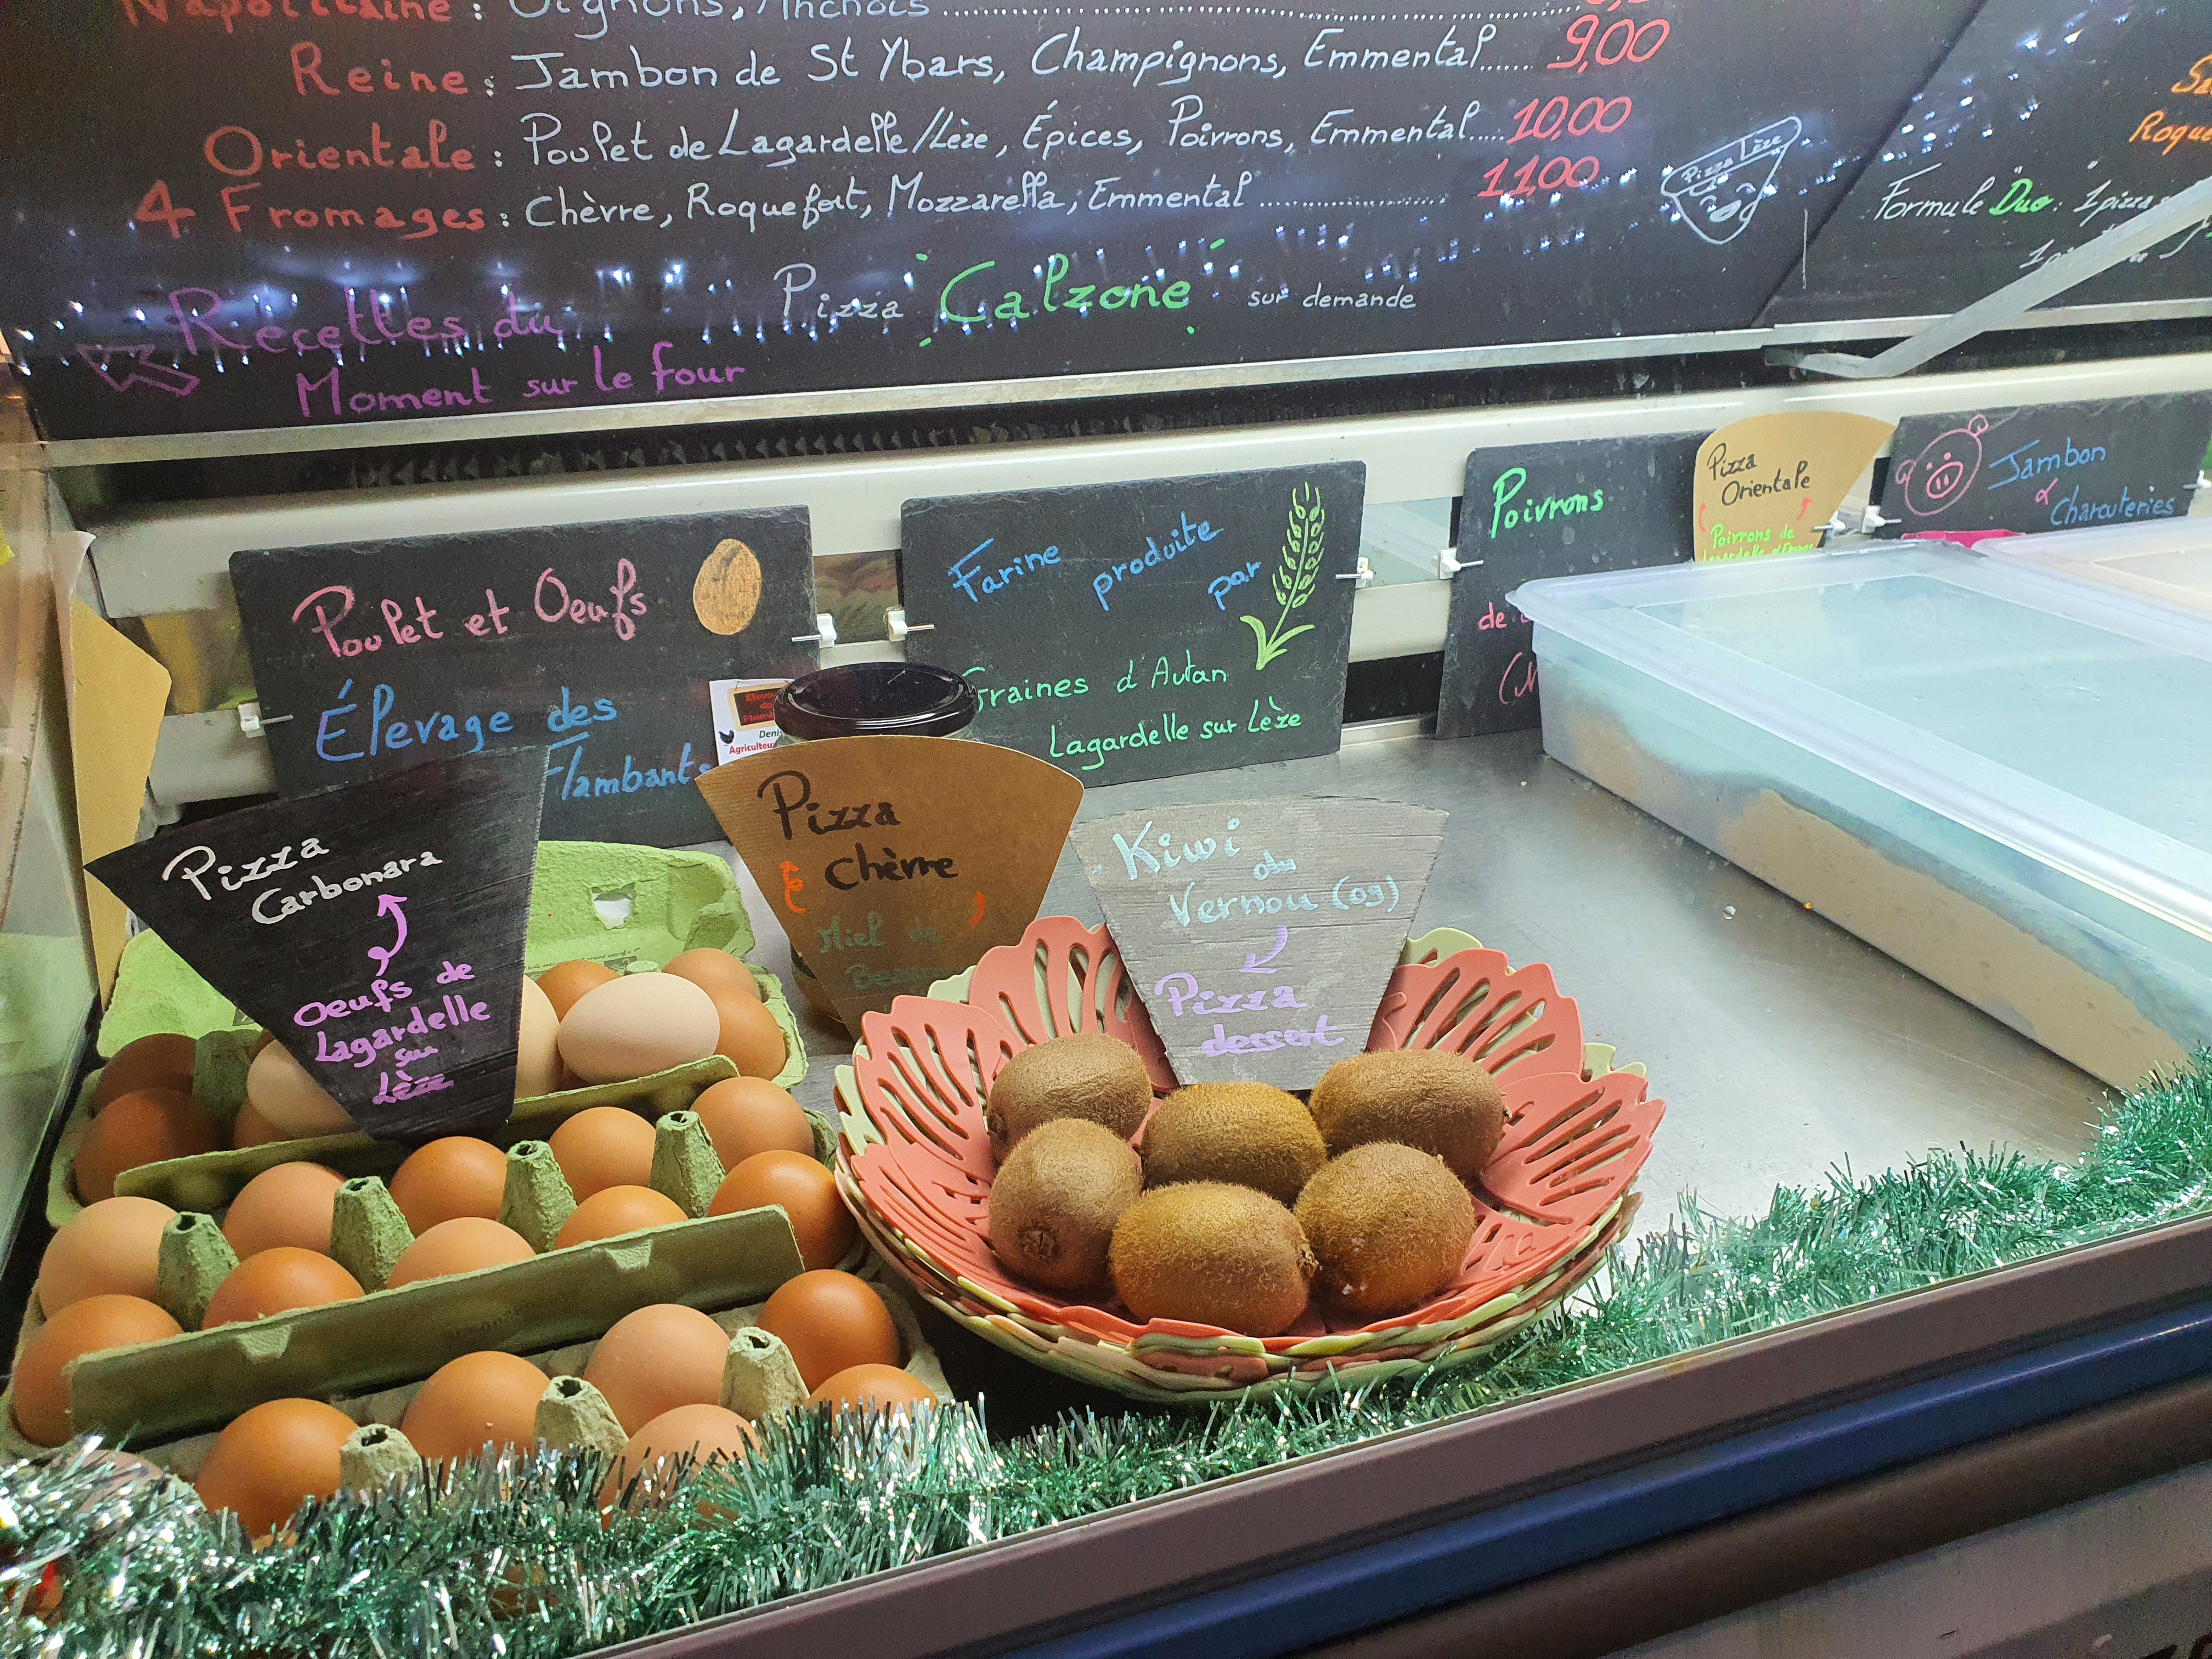 Napolitaine : Oignons, Anchois
Reine : Jambon de St Ybars, Champignons, Emmental...... 9,00
Orientale : Poulet de Lagardelle/Lèze, Épices, Poivrons, Emmental..... 10,00
4 Fromages : Chèvre, Roquefort, Mozzarella, Emmental .................... 11,00
Pizza Lèze
Pizza Calzone sur demande
Recettes du
Moment sur le four
Roque
Formule "Duo": 1 pizza
Poulet et Oeufs
Élevage des
Flambants
Agriculteu
Farine produite par
Graines d'Autan
Lagardelle sur Lèze
Poivrons
de
Pizza
Orientale
Poivrons de
Jambon
& Charcuteries
Pizza
Carbonara
Oeufs de
Lagardelle
sur
Lèze
Pizza
Chèvre
Miel de
Kiwi
du
Vernou (09)
Pizza
dessert